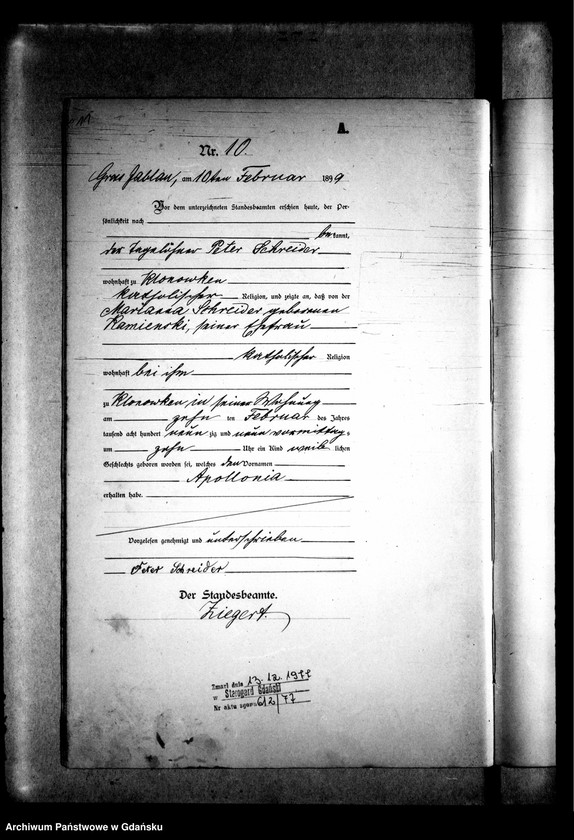 A.
Nr. 10.
Gross Jablau, am 10ten Februar 1899
Vor dem unterzeichneten Standesbeamten erschien heute, der Per-
sönlichkeit nach
bekannt,
der Tagelöhner Peter Schreider
wohnhaft zu Klonowken
katholischer Religion, und zeigte an, daß von der
Marianna Schreider geborenen
Kamienski, seiner Ehefrau
katholischer Religion
wohnhaft bei ihm
zu Klonowken in seiner Wohnung
am zehn ten Februar des Jahres
tausend acht hundert neun zig und neun vormittags
um zehn Uhr ein Kind weib lichen
Geschlechts geboren worden sei, welches den Vornamen
Apollonia
erhalten habe.
Vorgelesen genehmigt und unterschrieben
Peter Schreider
Der Standesbeamte.
Ziegert.
Zmarł dnia 13.12.1977
w Starogard Gdański
Nr aktu zgonu 612/77
Archiwum Państwowe w Gdańsku